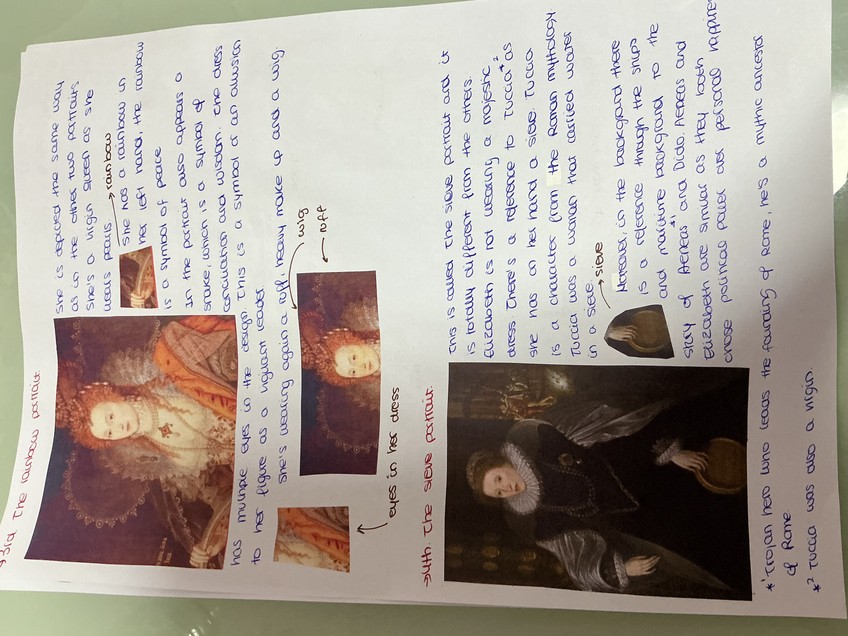 →3rd The rainbow portrait.
She is depicted the same way
as in the other two portraits
She's a virgin queen as she
wears pearls.
→rainbow
She has a rainbow in
her left hand, the rainbow
is a symbol of peace
In the portrait also appears a
snake, which is a symbol of
and wisdom. The dress
has multiple eyes in the design. This is a symbol or an allusion
to her figure as a vigilant leader
She's wearing again a ruff heavy make up and a wig.
wig
ruff
eyes in her dress
→4th. The sieve portrait.
This is called The sieve portrait and it
is totally different from the others.
Elizabeth is not wearing a majestic
dress. There's a reference to Tuccia*2 as
she has on her hand a sieve. Tuccia
is a character from the Roman mythology.
Tuccia was a woman that carried water
in a sieve.
→ sieve
Moreover, in the background there
is a reference through the ships
and maritime background to the
story of Aeneas*1 and Dido. Aeneas and
Elizabeth are similar as they both
chose political power over personal happiness
*1 Trojan hero who leads the founding of Rome, he's a mythic ancestor
of Rome
*2 Tuccia was also a virgin.